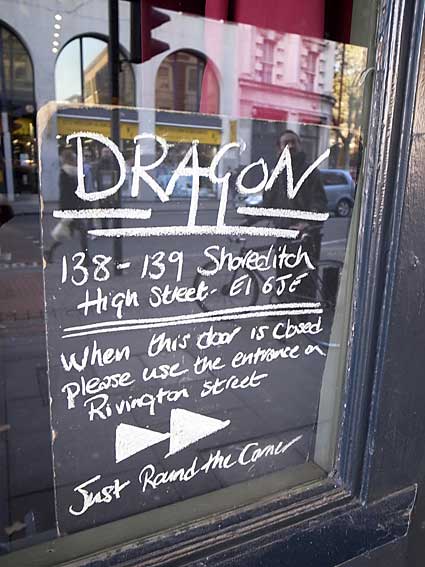 DRAGON
138-139 Shoreditch
High Street- E1 6JE
When this door is closed
please use the entrance on
Rivington Street
Just Round the Corner